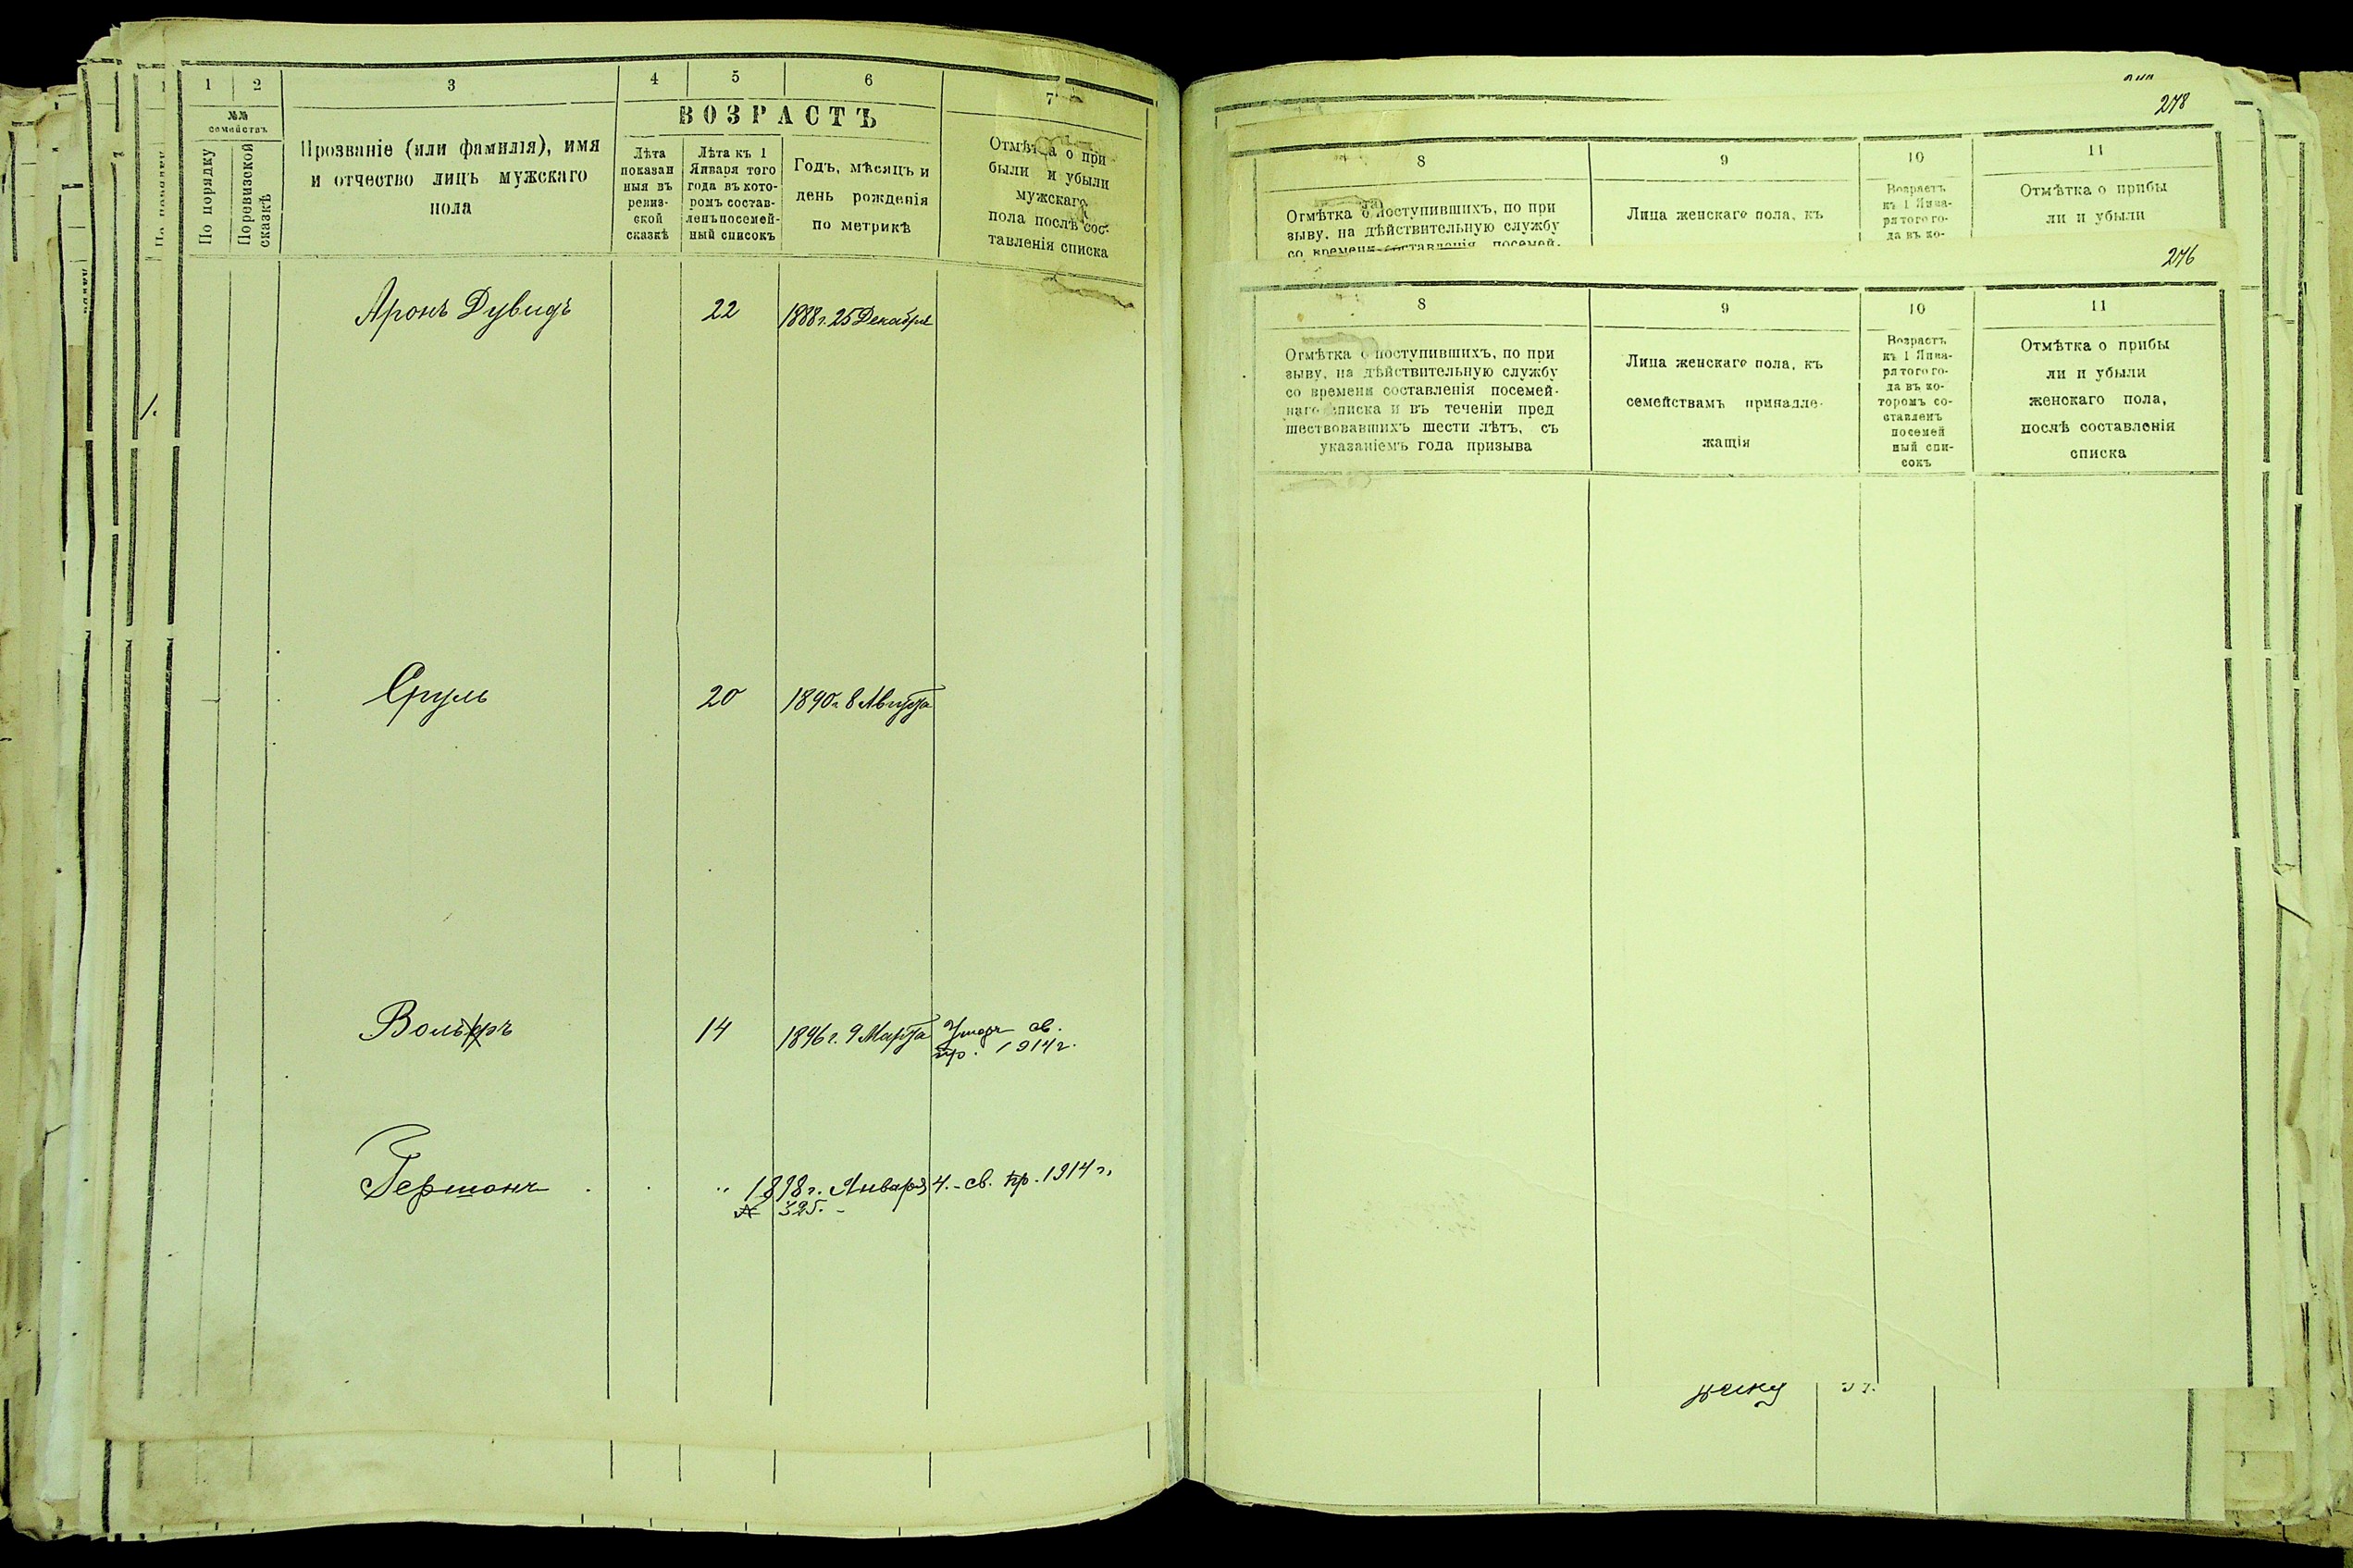 1 2 3 4 5 6 7
№№
семействъ
По порядку
По ревизской
сказкѣ
Прозваніе (или фамилія), имя
и отчество лицъ мужскаго
пола
ВОЗРАСТЪ
Лѣта
показан
ныя въ
ревиз-
ской
сказкѣ
Лѣта къ 1
Января того
года въ кото-
ромъ состав-
ленъ посемей-
ный списокъ
Годъ, мѣсяцъ и
день рожденія
по метрикѣ
Отмѣтка о при
были и убыли
мужскаго
пола послѣ сос-
тавленія списка
Аронъ Дувидъ 22 1888 г. 25 Декабря
1.
Сруль 20 1890 г. 8 Августа
Вольфъ 14 1896 г. 9 Марта Умеръ св.
пр. 1914 г.
Гершонъ " 1898 г. Января 4. - св. пр. 1914 г.
№ 325. -
278
8 9 10 11
Отмѣтка о поступившихъ, по при
зыву, на дѣйствительную службу
со времени составленія посемей-
Лица женскаго пола, къ
Возрастъ
къ 1 Янва-
ря того го-
да въ ко-
Отмѣтка о прибы
ли и убыли
276
8 9 10 11
Отмѣтка о поступившихъ, по при
зыву, на дѣйствительную службу
со времени составленія посемей-
наго списка и въ теченіи пред
шествовавшихъ шести лѣтъ, съ
указаніемъ года призыва
Лица женскаго пола, къ
семействамъ принадле-
жащія
Возрастъ
къ 1 Янва-
ря того го-
да въ ко-
торомъ со-
ставленъ
посемей
ный спи-
сокъ
Отмѣтка о прибы
ли и убыли
женскаго пола,
послѣ составленія
списка